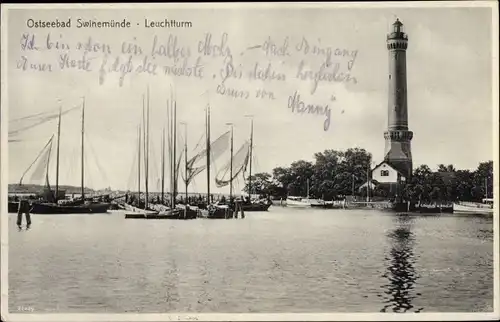 Ostseebad Swinemünde - Leuchtturm
Ich bin schon ein halber Mohr. — Nach Eingang
Eurer Karte folgt die nächste. Bis dahin herzlichen
Gruss von
Manny